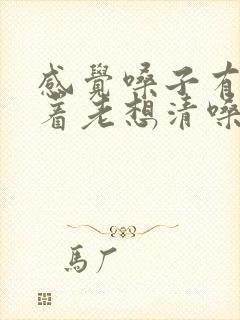 感覺嗓子有
着老想清嗓
馬厂